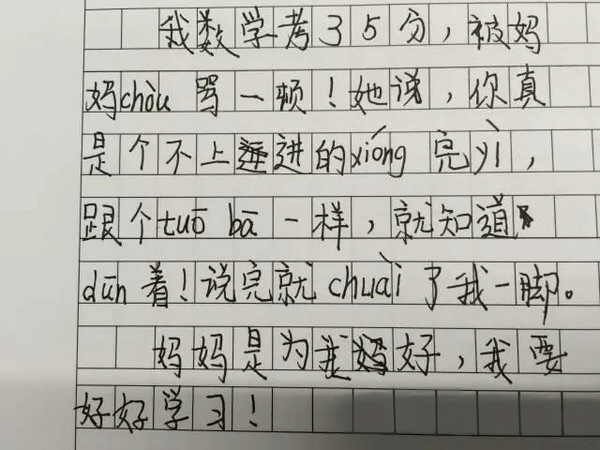 我数学考35分，被妈
妈chòu 骂一顿！她说，你真
是个不上进的xióng 完yì，
跟个tuō bā 一样，就知道
dūn 着！说完就 chuài 了我一脚。
妈妈是为我好，我要
好好学习！